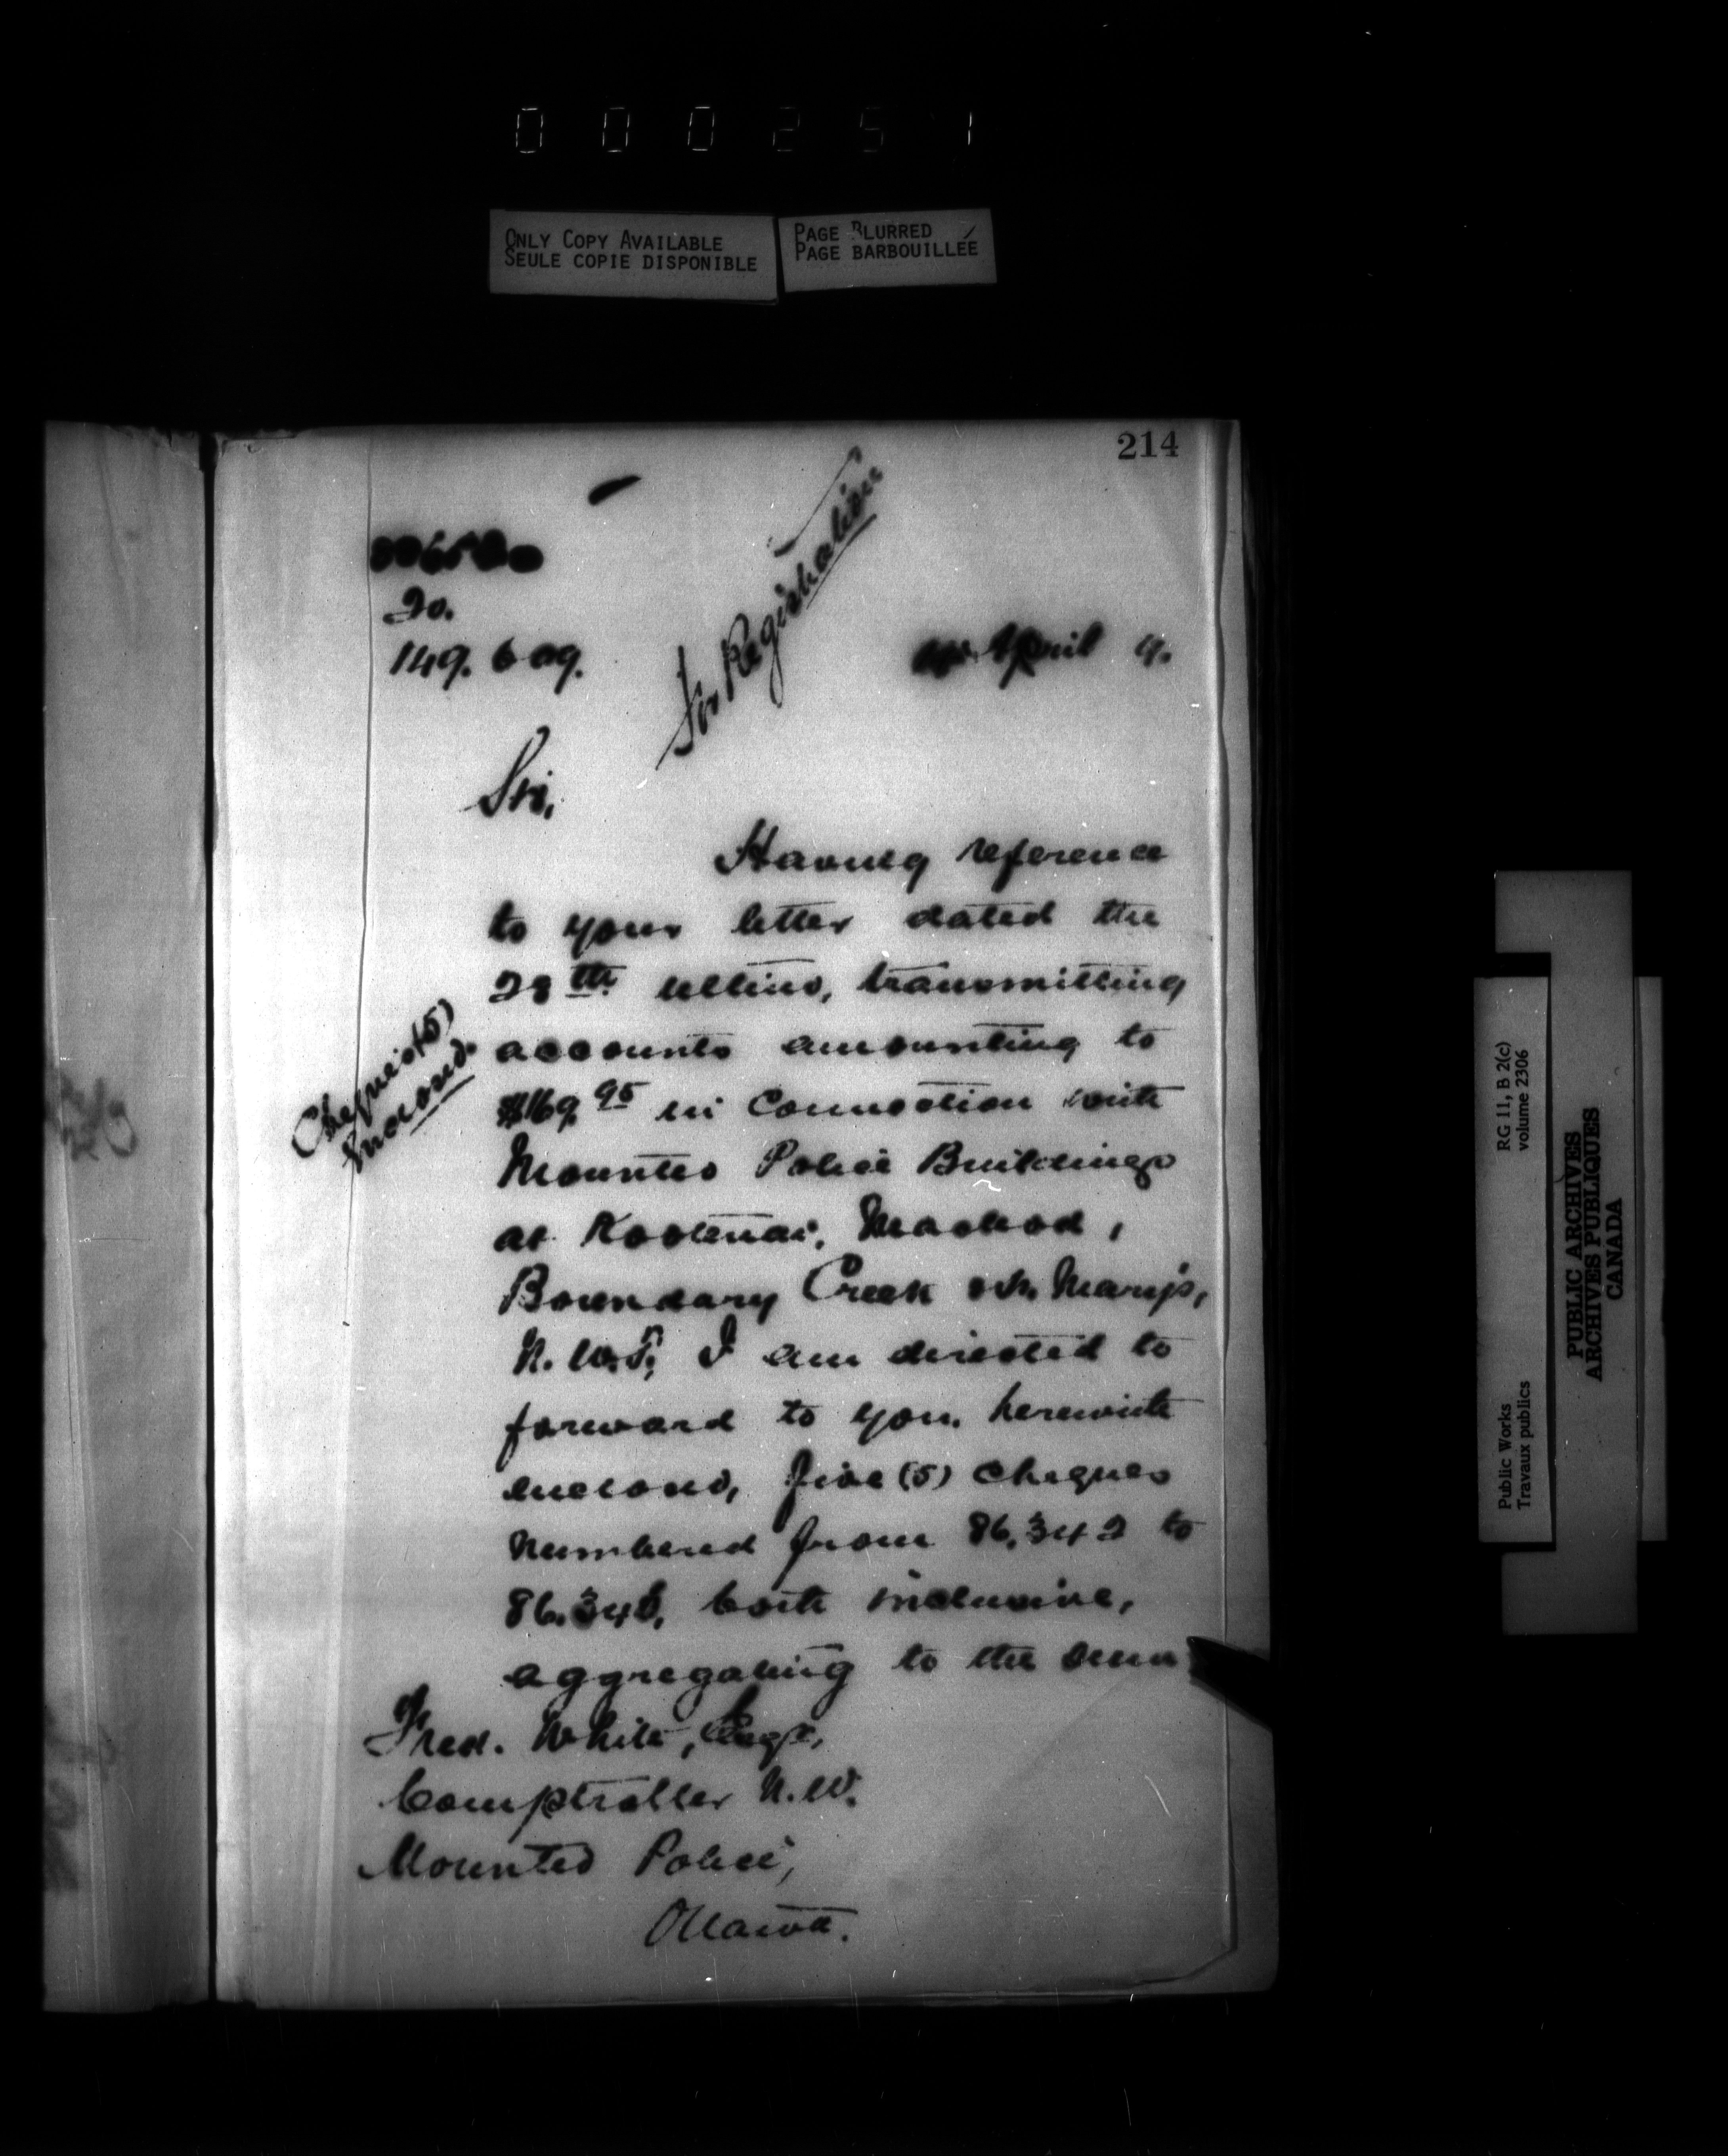 000251
ONLY COPY AVAILABLE
SEULE COPIE DISPONIBLE
PAGE BLURRED
PAGE BARBOUILLÉE
214
For Registration
20.
149.609.
April
Sir,
Having reference
to your letter dated the
28th ultimo, transmitting
accounts amounting to
$169.95 in connection with
Mounted Police Buildings
at Kootenai, Macleod,
Boundary Creek & St. Mary's,
N.W.T., I am directed to
forward to you, herewith
enclosed, five (5) cheques
numbered from 86,342 to
both inclusive,
aggregating to the sum
Cheques (5)
enclosed.
Fred. White, Esqr.,
Comptroller N.W.
Mounted Police,
Ottawa.
Public Works
Travaux publics
RG 11, B 2(c)
volume 2306
PUBLIC ARCHIVES
ARCHIVES PUBLIQUES
CANADA